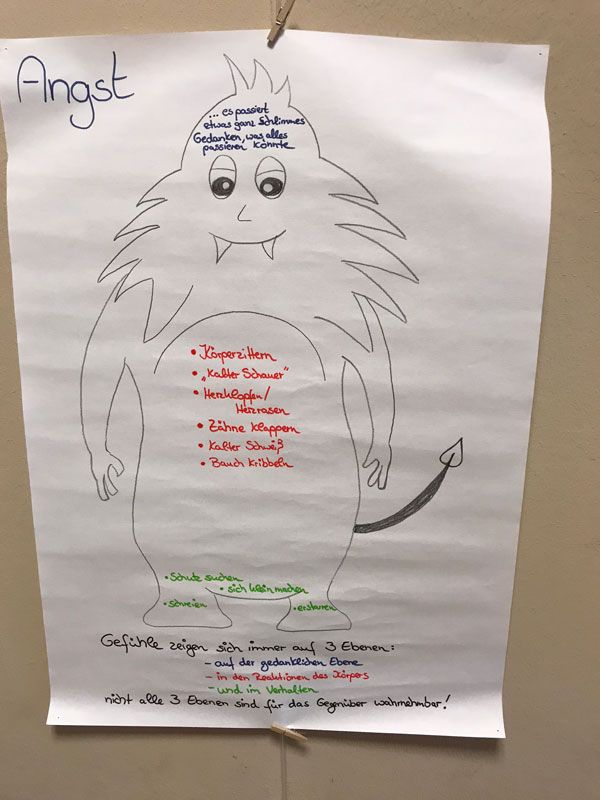 Angst
... es passiert
etwas ganz Schlimmes
Gedanken, was alles
passieren könnte
• Körperzittern
• „Kalter Schauer"
• Herzklopfen/
Herzrasen
• Zähne klappern
• Kalter Schweiß
• Bauch Kribbeln
• Schutz suchen
• sich klein machen
• schreien
• erstarren
Gefühle zeigen sich immer auf 3 Ebenen:
- auf der gedanklichen Ebene
- in den Reaktionen des Körpers
- und im Verhalten
nicht alle 3 Ebenen sind für das Gegenüber wahrnehmbar!